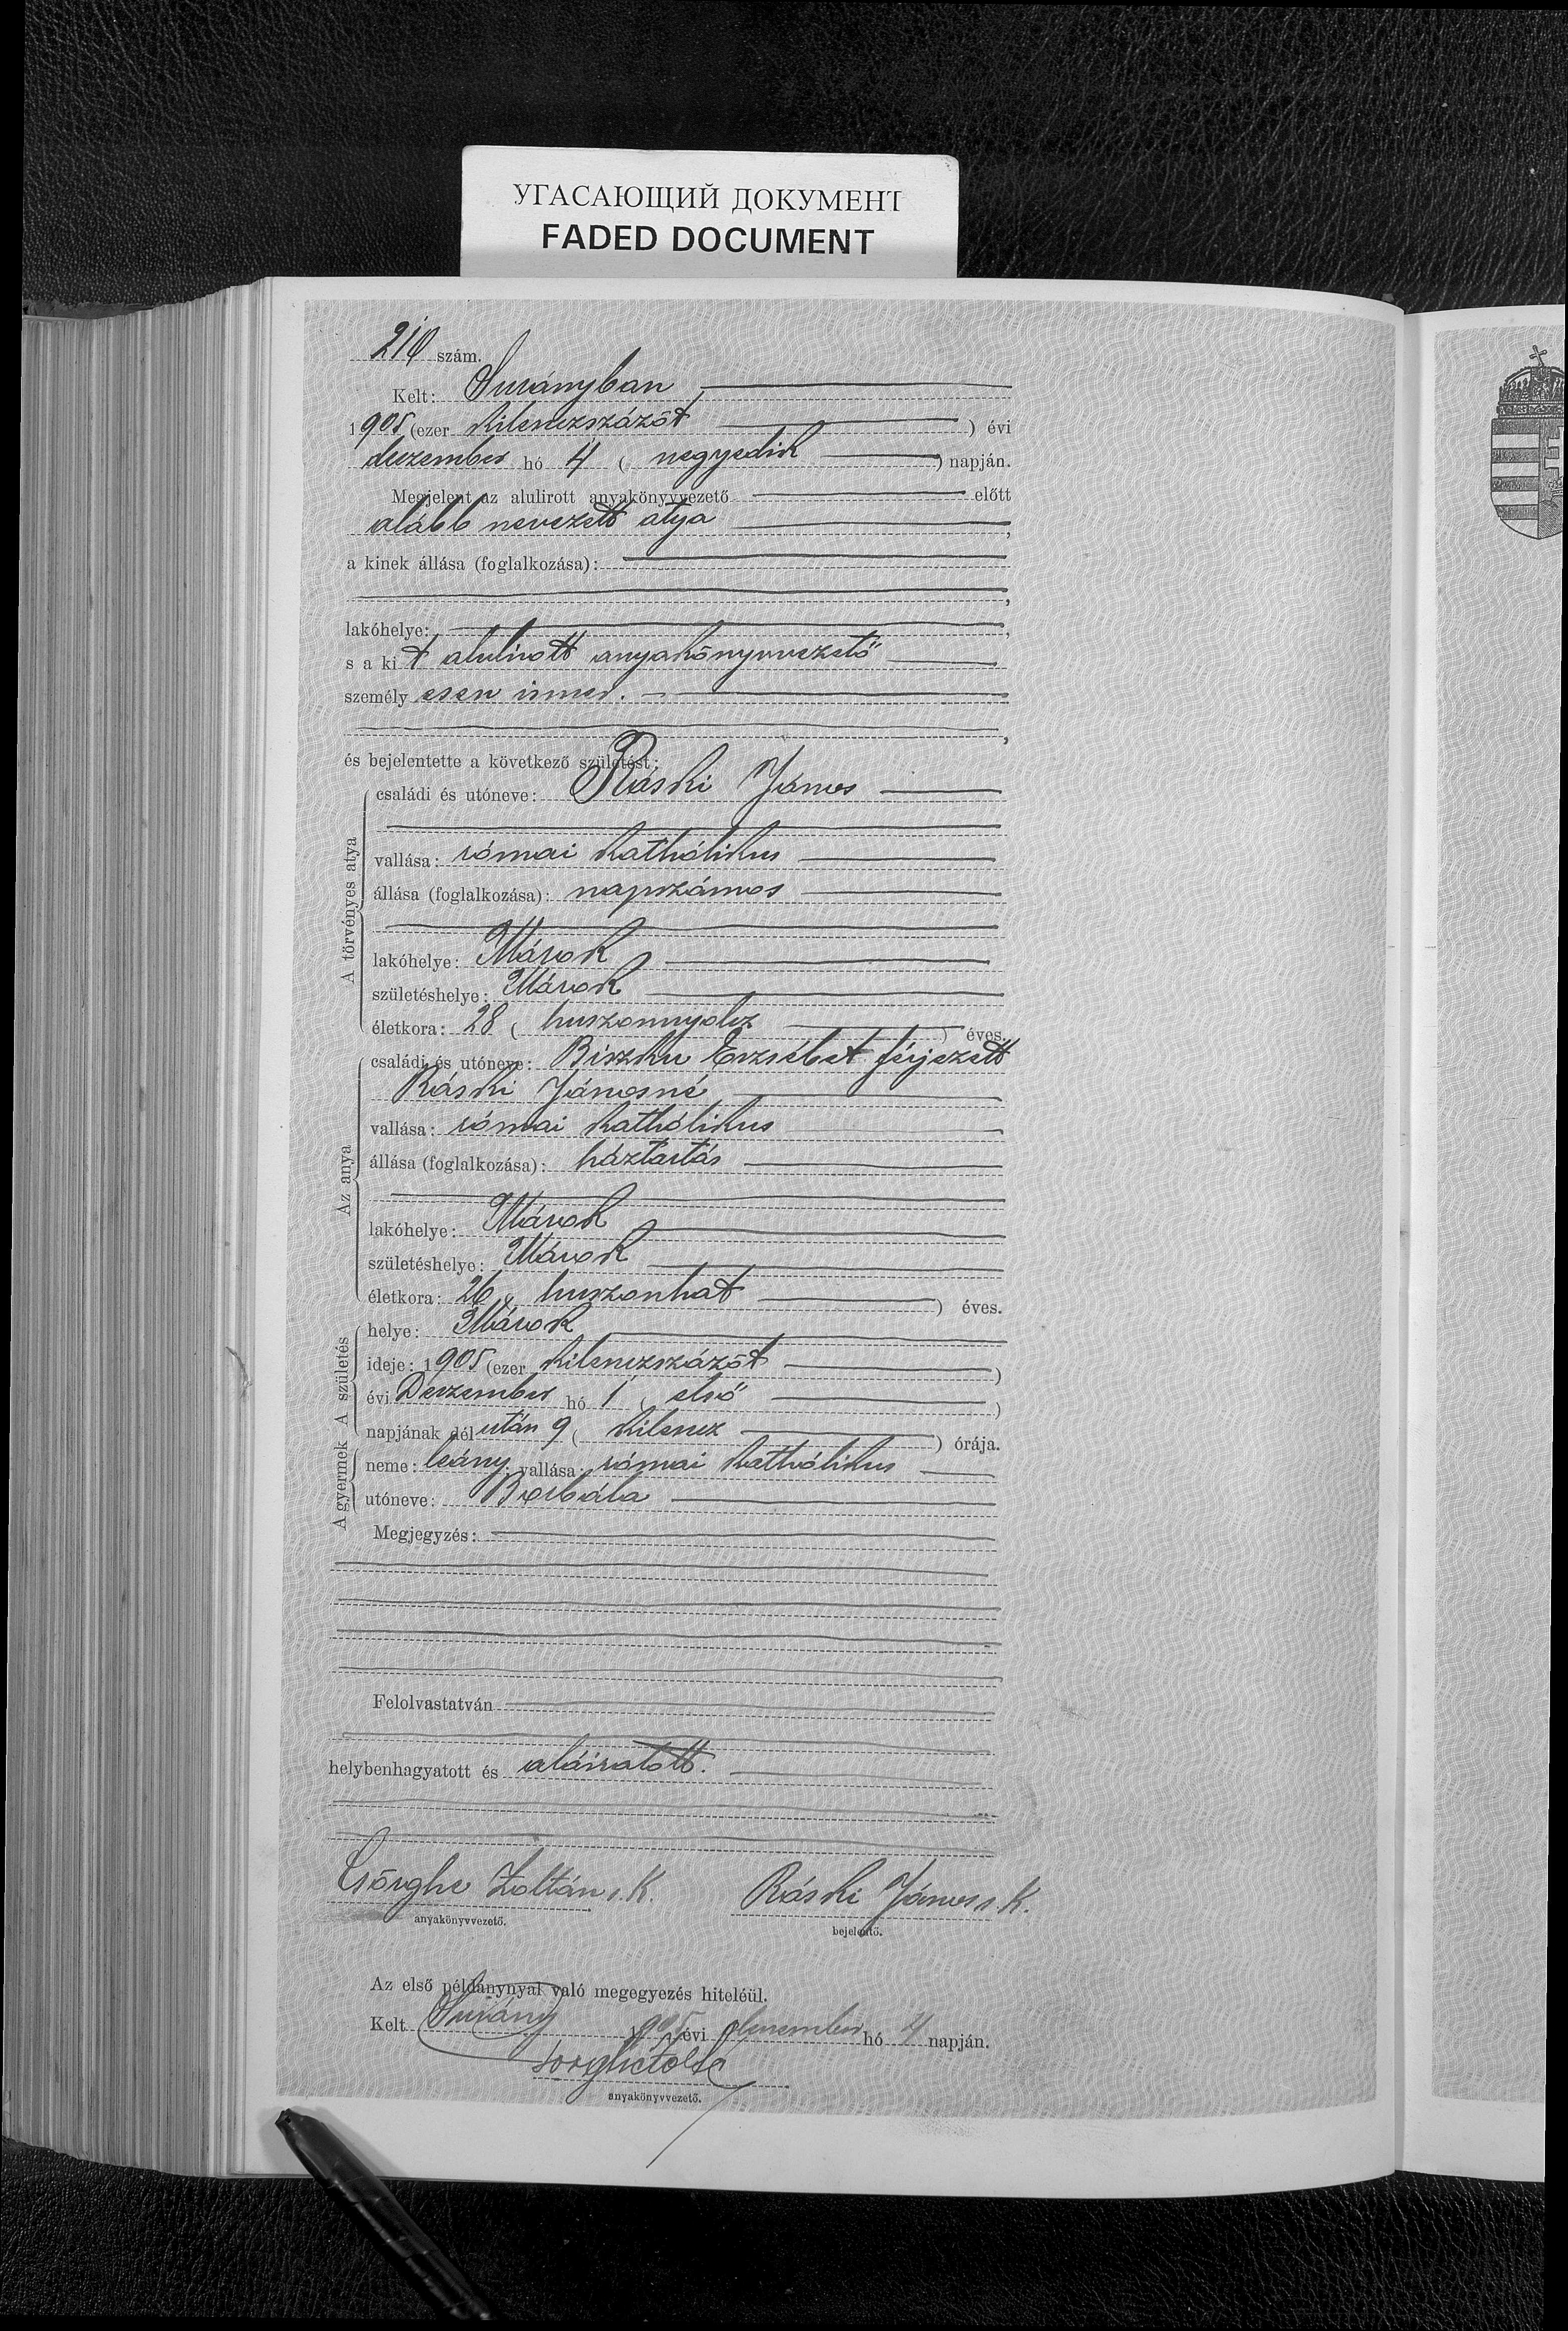 УГАСАЮЩИЙ ДОКУМЕНТ
FADED DOCUMENT
210 szám.
Kelt: Surányban
1905 (ezer kilenczszázöt) évi
deczember hó 4 (negyedik) napján.
Megjelent az alulirott anyakönyvvezető előtt
alább nevezett atya,
a kinek állása (foglalkozása):
,
lakóhelye: ,
s a kit alulirott anyakönyvvezető
személyesen ismer.
,
és bejelentette a következő születést:
A törvényes atya
családi és utóneve: Ráski János
vallása: római katholikus
állása (foglalkozása): napszámos
lakóhelye: Márok
születéshelye: Márok
életkora: 28 (huszonnyolcz) éves.
Az anya
családi és utóneve: Biszku Erzsébet férjezett
Ráski Jánosné
vallása: római katholikus
állása (foglalkozása): háztartás
lakóhelye: Márok
születéshelye: Márok
életkora: 26 (huszonhat) éves.
A születés
helye: Márok
ideje: 1905 (ezer kilenczszázöt)
évi Deczember hó 1 (első)
napjának dél után 9 (kilencz) órája.
A gyermek
neme: leány vallása: római katholikus
utóneve: Borbála
Megjegyzés:
Felolvastatván
helybenhagyatott és aláiratott.
Zoltán s. k. Ráski János s. k.
anyakönyvvezető. bejelentő.
Az első példánynyal való megegyezés hiteléül.
Kelt Surány 1905 évi deczember hó 4 napján.
anyakönyvvezető.